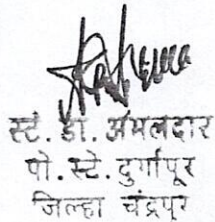 स्टे. डा. अंमलदार
पो. स्टे. दुर्गापूर
जिल्हा चंद्रपूर